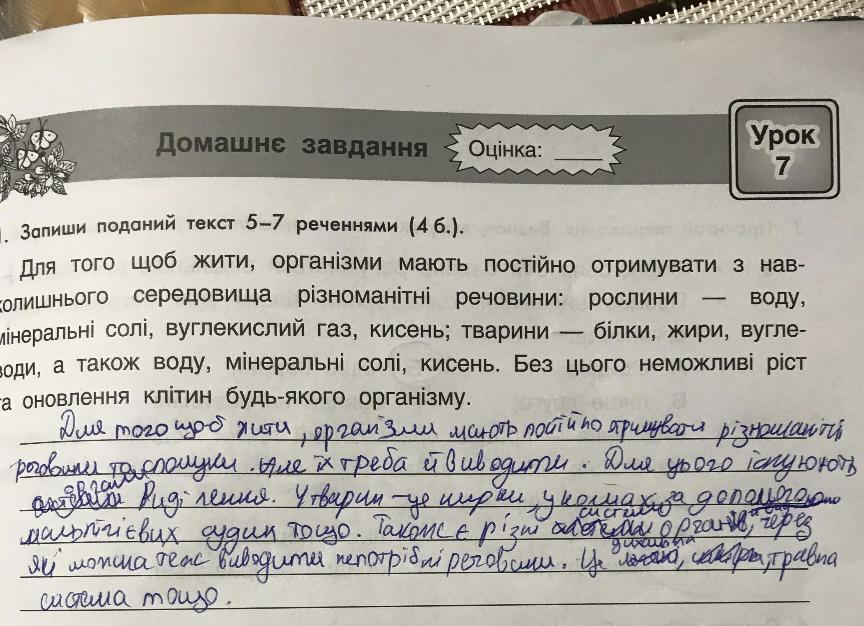 Домашнє завдання
Оцінка:
Урок
7
1. Запиши поданий текст 5–7 реченнями (4 б.).
Для того щоб жити, організми мають постійно отримувати з нав-
колишнього середовища різноманітні речовини: рослини — воду,
мінеральні солі, вуглекислий газ, кисень; тварини — білки, жири, вугле-
води, а також воду, мінеральні солі, кисень. Без цього неможливі ріст
та оновлення клітин будь-якого організму.
Для того щоб жити, організми мають постійно отримувати різноманітні
речовини та сполуки. Але їх треба й виводити. Для цього існують
органи виділення. У тварин – це нирки, у комах за допомогою
мальпігієвих судин тощо. Також є різні системи органів, через
які можна теж виводити непотрібні речовини. Це дихальна, травна
система тощо.